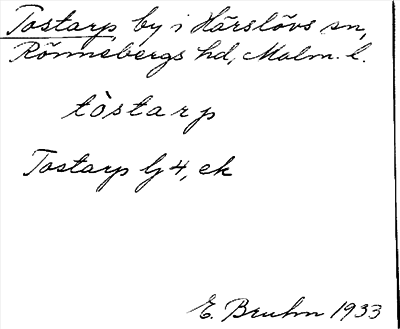 Tostarp, by i Härslövs sn,
Rönnebergs hd, Malm. l.
tòstarp
Tostarp lj 4, ek
E. Bruhn 1933